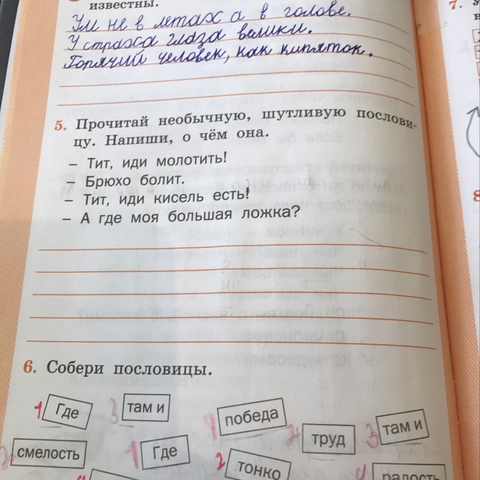 известны.
Ум не в летах а в голове.
У страха глаза велики.
Горячий человек, как кипяток.
7.
5. Прочитай необычную, шутливую послови-
цу. Напиши, о чём она.
– Тит, иди молотить!
– Брюхо болит.
– Тит, иди кисель есть!
– А где моя большая ложка?
8
6. Собери пословицы.
1 Где 3 там и 1 победа
2 труд 3 там и
2 смелость 1 Где 2 тонко
4 радость